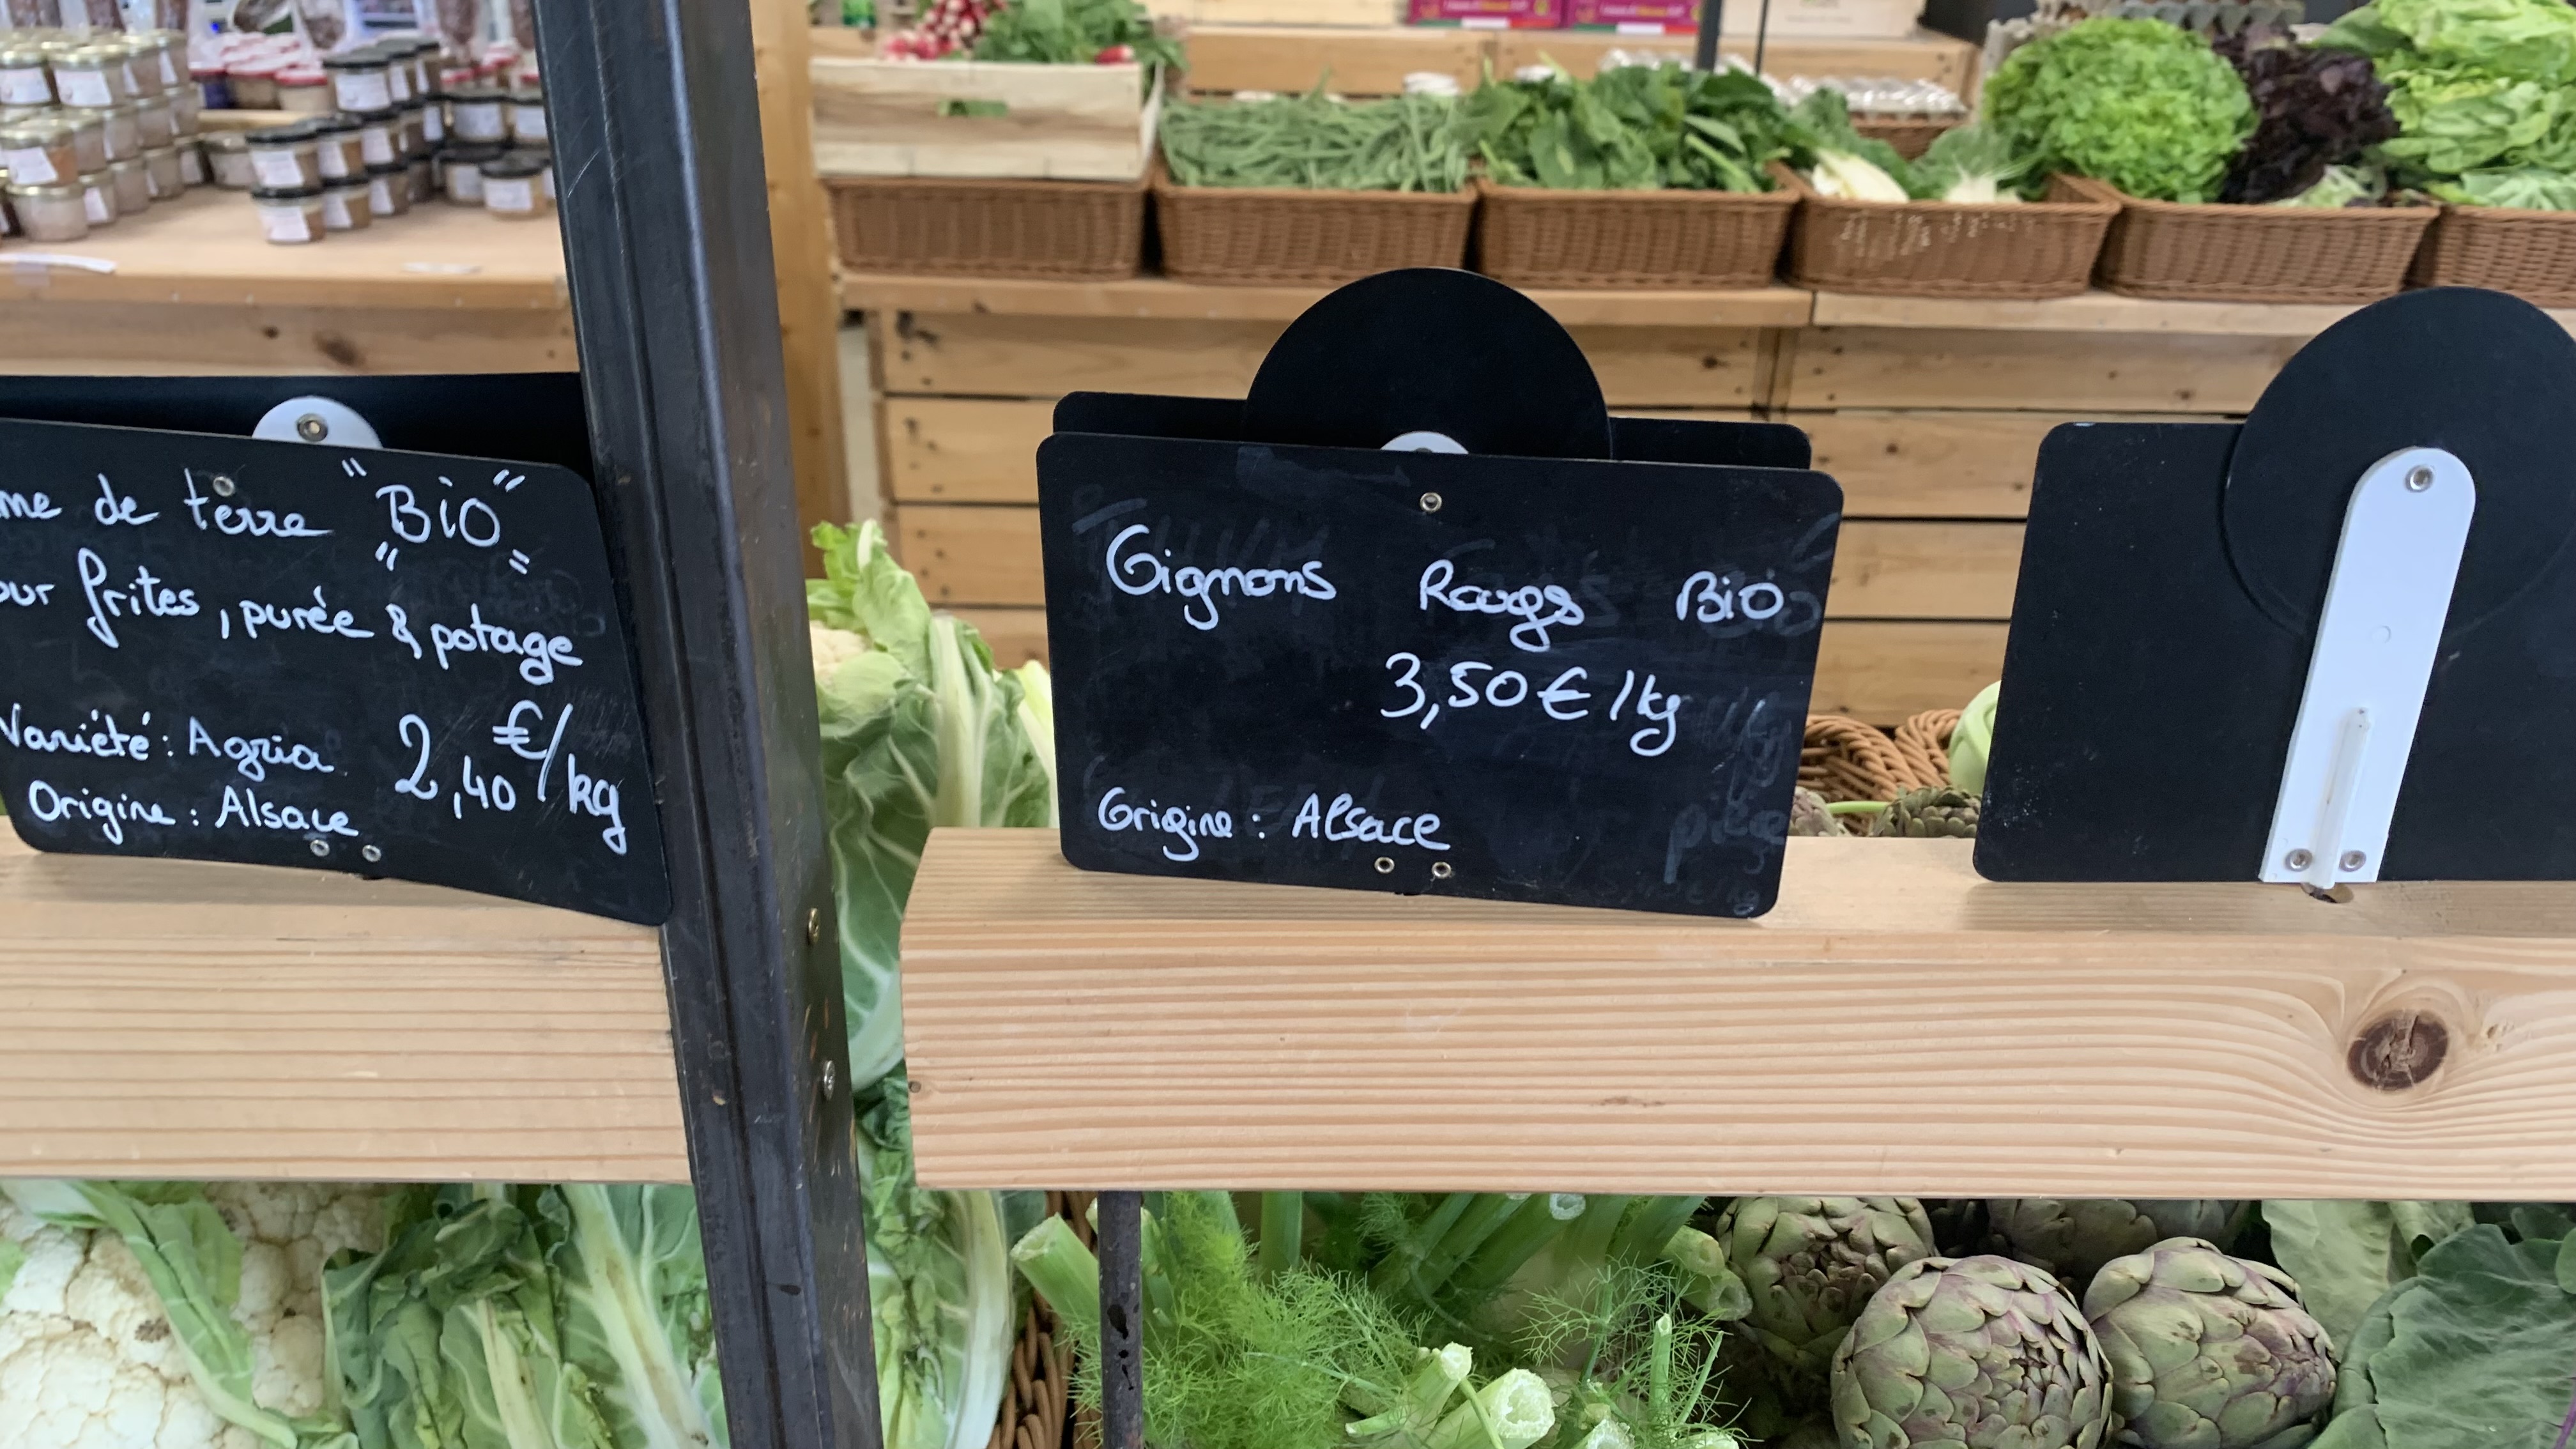 me de terre "BiO"
our "frites", purée & potage
Variété : Agria 2,40 €/kg
Origine : Alsace
Oignons Rouges Bio
3,50 € /kg
Origine : Alsace
pièce